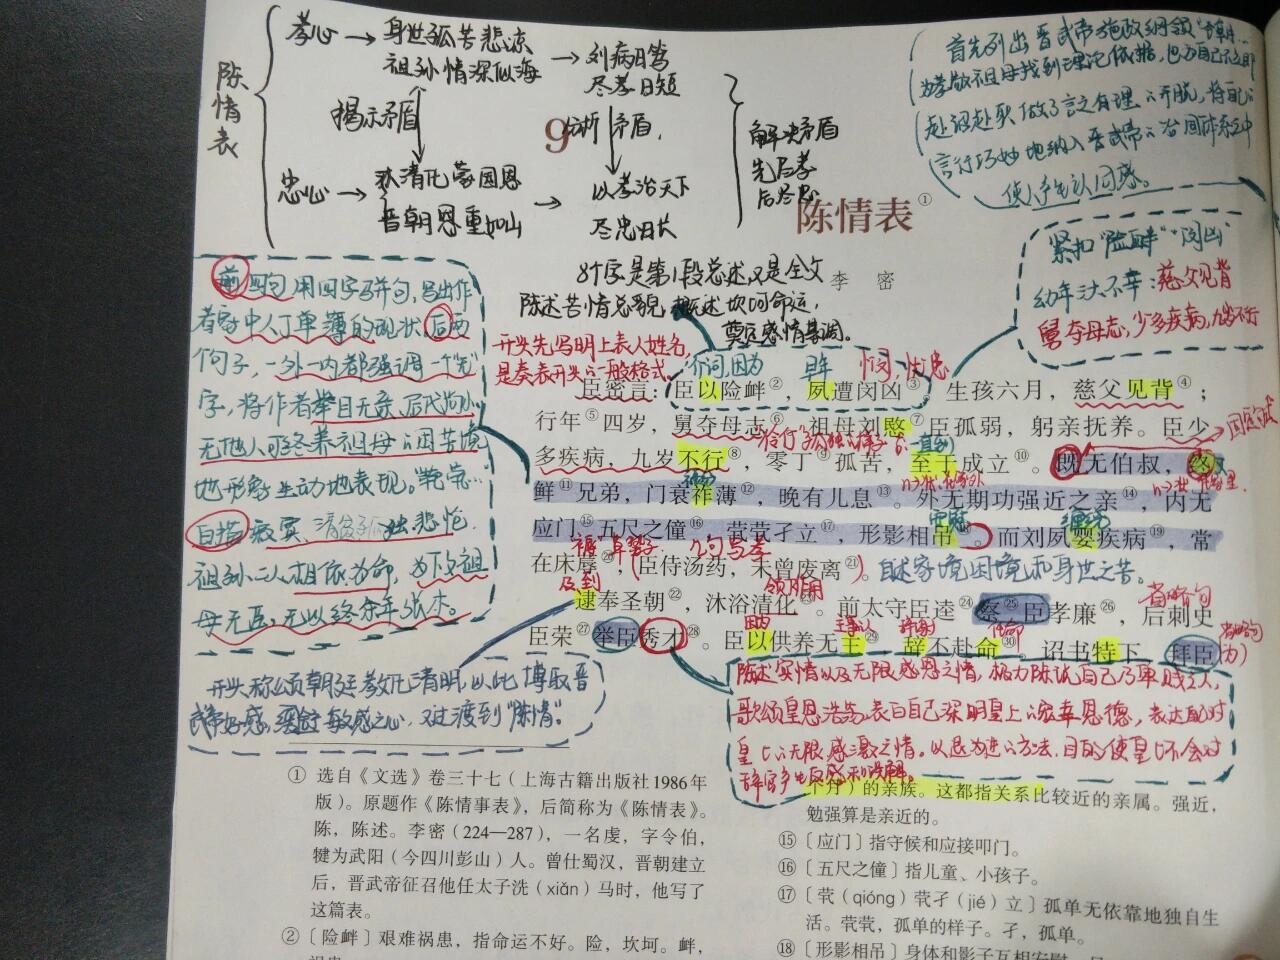 陈情表
孝心→身世孤苦悲凉
祖孙情深似海
→刘病日笃
尽孝日短
揭示矛盾
分析矛盾，
忠心→沐清化蒙国恩
晋朝恩重如山
→以孝治天下
尽忠日长
解决矛盾
先尽孝
后尽忠
首先列出晋武帝施政纲领
为孝敬祖母找到理论依据，也为自己不立即
赴诏赴职做了言之有理的开脱，将自己
言行巧妙地纳入晋武帝的治国体系之中
使人产生认同感。
9
陈情表①
李 密
8个字是第1段总述又是全文
陈述苦情总貌，概述坎坷命运，
奠定感情基调。
紧扣“险衅”“闵凶”
幼年 不幸：慈父见背
舅夺母志，少多疾病，九岁不行
前四句用四字骈句，写出作
者家中人丁单薄的现状，后两
个句子，一外一内都强调一个“无”
字，将作者举目无亲，后代尚小
无他人可终养祖母的困苦境
地形象生动地表现。“茕茕…
自描寂寞、清 孤独悲怆
祖孙二人相依为命，为下文祖
母无臣，无以终余年张本。
开头先写明上表人姓名，
是奏表开头的一般格式。
介词，因为
早年
忧患
臣密言：臣以险衅②，夙遭闵凶③。生孩六月，慈父见背④；
行年⑤四岁，舅夺母志⑥。祖母刘愍⑦臣孤弱，躬亲抚养。臣少
伶仃 孤独的样子
直到
多疾病，九岁不行⑧，零丁⑨孤苦，至于成立⑩。既无伯叔，终
鲜⑪兄弟，门衰祚薄⑫，晚有儿息⑬。外无期功强近之亲⑭，内无
应门⑮五尺之僮⑯，茕茕孑立⑰，形影相吊⑱。而刘夙婴疾病⑲，常
在床蓐⑳，臣侍汤药，未曾废离㉑。
自述家境困境而身世之苦。
及到
领作用
省略句
逮奉圣朝㉒，沐浴清化㉓。前太守臣逵㉔察㉕臣孝廉㉖，后刺史
臣荣㉗举臣秀才㉘。臣以供养无主㉙，辞不赴命㉚。诏书特下，拜臣
开头称颂朝廷教化清明，以此博取晋
武帝好感，缓解敏感之心，又过渡到“陈情”。
陈述实情以及无限感恩之情，极力陈说自己乃卑贱之人，
歌颂皇恩浩荡，表白自己深明皇上的宠幸恩德，表达 对
皇上的无限感激之情。以退为进的方法，目的使皇上不会对
辞官产生反感和误解。
① 选自《文选》卷三十七（上海古籍出版社1986年
版）。原题作《陈情事表》，后简称为《陈情表》。
陈，陈述。李密（224—287），一名虔，字令伯，
犍为武阳（今四川彭山）人。曾仕蜀汉，晋朝建立
后，晋武帝征召他任太子洗（xiǎn）马时，他写了
这篇表。
②〔险衅〕艰难祸患，指命运不好。险，坎坷。衅，
的亲族。这都指关系比较近的亲属。强近，
勉强算是亲近的。
⑮〔应门〕指守候和应接叩门。
⑯〔五尺之僮〕指儿童、小孩子。
⑰〔茕（qióng）茕孑（jié）立〕孤单无依靠地独自生
活。茕茕，孤单的样子。孑，孤单。
⑱〔形影相吊〕身体和影子互相安慰